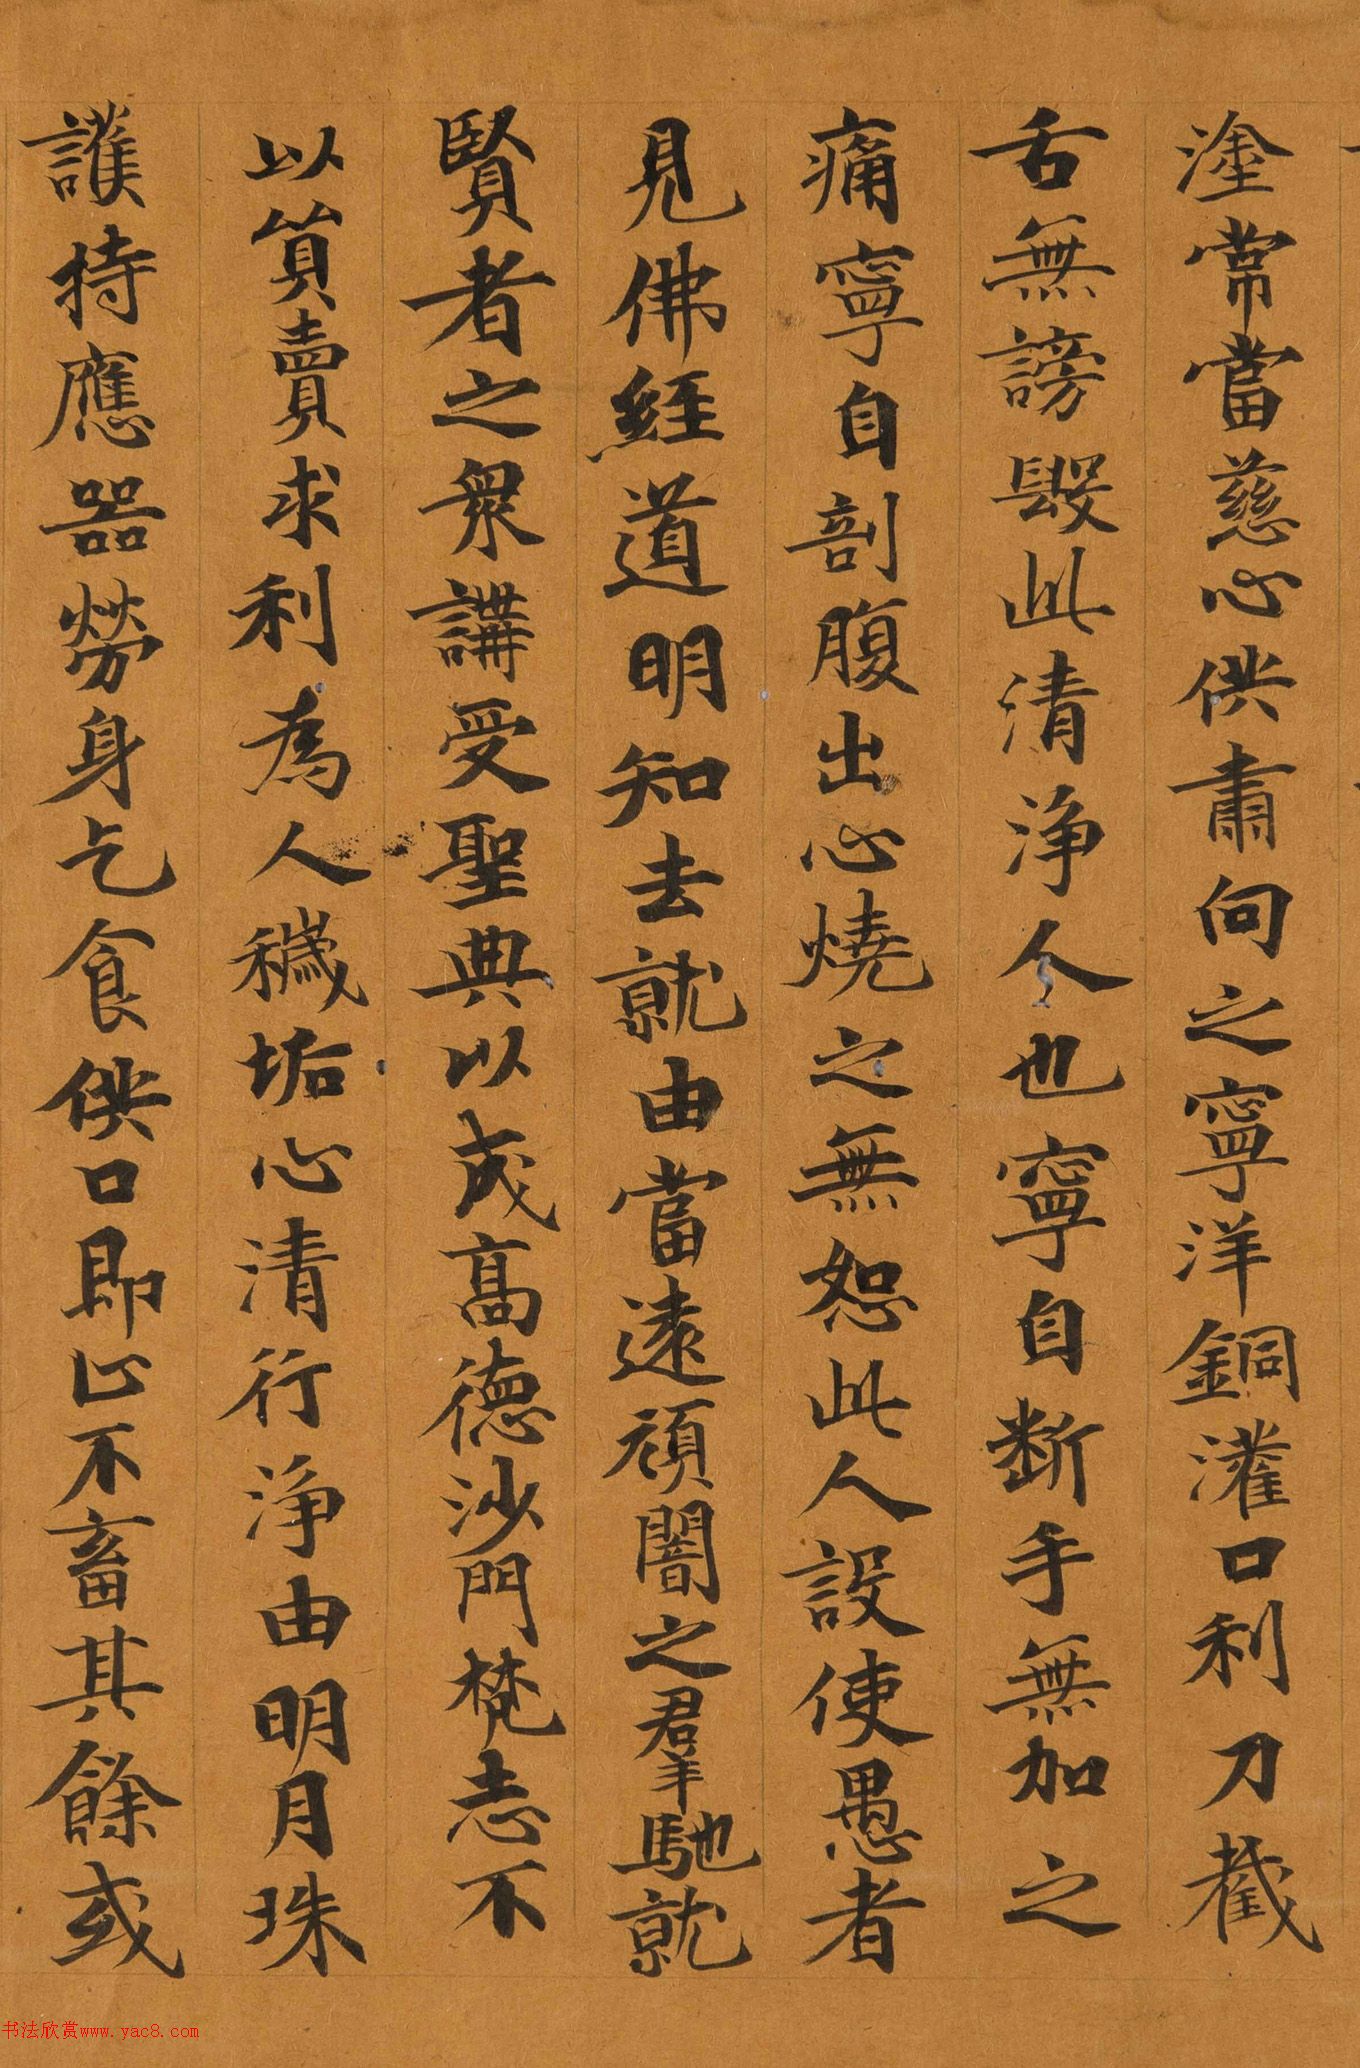 塗常當慈心供肅向之寧洋銅灌口利刀截
舌無謗毀此清淨人也寧自斷手無加之
痛寧自剖腹出心燒之無怨此人設使愚者
見佛經道明知去就由當遠頑闇之羣馳就
賢者之眾講受聖典以成高德沙門梵志不
以貿賣求利為人穢垢心清行淨由明月珠
護持應器勞身乞食供口即止不畜其餘或
书法欣赏www.yac8.com